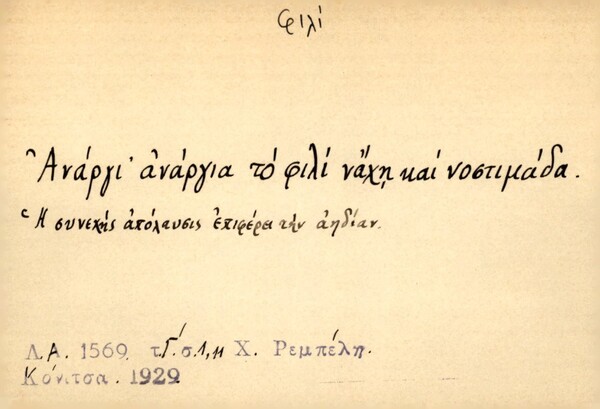 φιλί
Ἀνάργι' ἀνάργια τό φιλί νἄχῃ καί νοστιμάδα.
Ἡ συνεχής ἀπόλαυσις ἐπιφέρει τήν ἀηδίαν.
Λ.Α. 1569 τ.Γ΄. σ. Χ. Ρεμπέλη.
Κόνιτσα. 1929